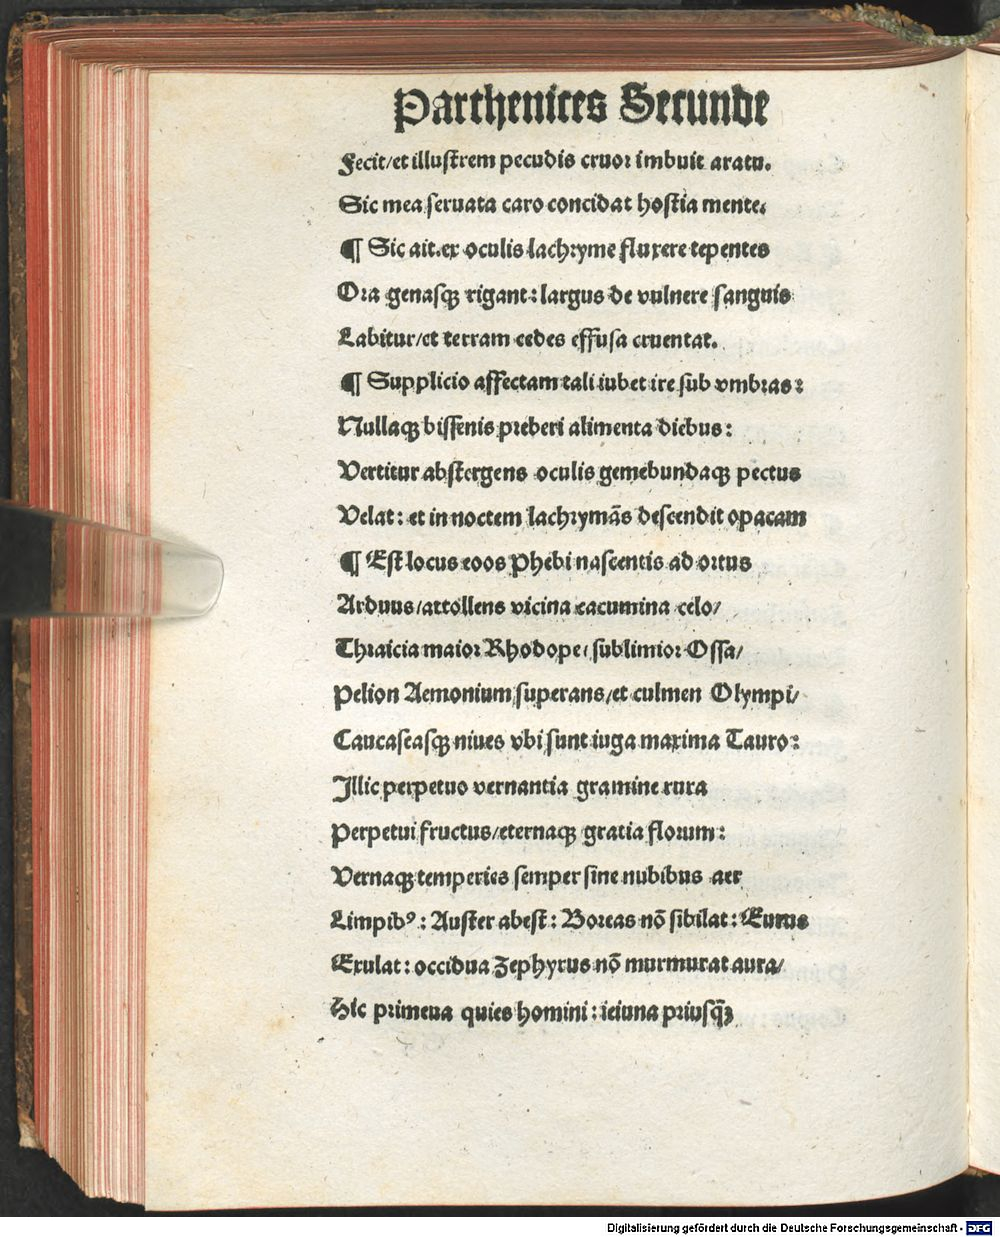 Parthenices Secunde
Fecit/et illustrem pecudis cruor imbuit aratu.
Sic mea seruata caro concidat hostia mente.
¶ Sic ait.ex oculis lachryme fluxere tepentes
Ora genasqꝫ rigant: largus de vulnere sanguis
Labitur/et terram cedes effusa cruentat.
¶ Supplicio affectam tali iubet ire sub vmbras:
Nullaqꝫ bissenis preberi alimenta diebus:
Vertitur abstergens oculis gemebundaqꝫ pectus
Velat: et in noctem lachrymãs descendit opacam
¶ Est locus eoos Phebi nascentis ad ortus
Arduus/attollens vicina cacumina celo/
Thraicia maior Rhodope/sublimior Ossa/
Pelion Aemonium superans/et culmen Olympi/
Caucaseasqꝫ niues vbi sunt iuga maxima Tauro:
Illic perpetuo vernantia gramine rura
Perpetui fructus/eternaqꝫ gratia florum:
Vernaqꝫ temperies semper sine nubibus aer
Limpidꝰ: Auster abest: Boreas nõ sibilat: Eurus
Exulat: occidua Zephyrus nõ murmurat aura/
Hic primeua quies homini: ieiuna priusqꝫ̃
Digitalisierung gefördert durch die Deutsche Forschungsgemeinschaft - DFG